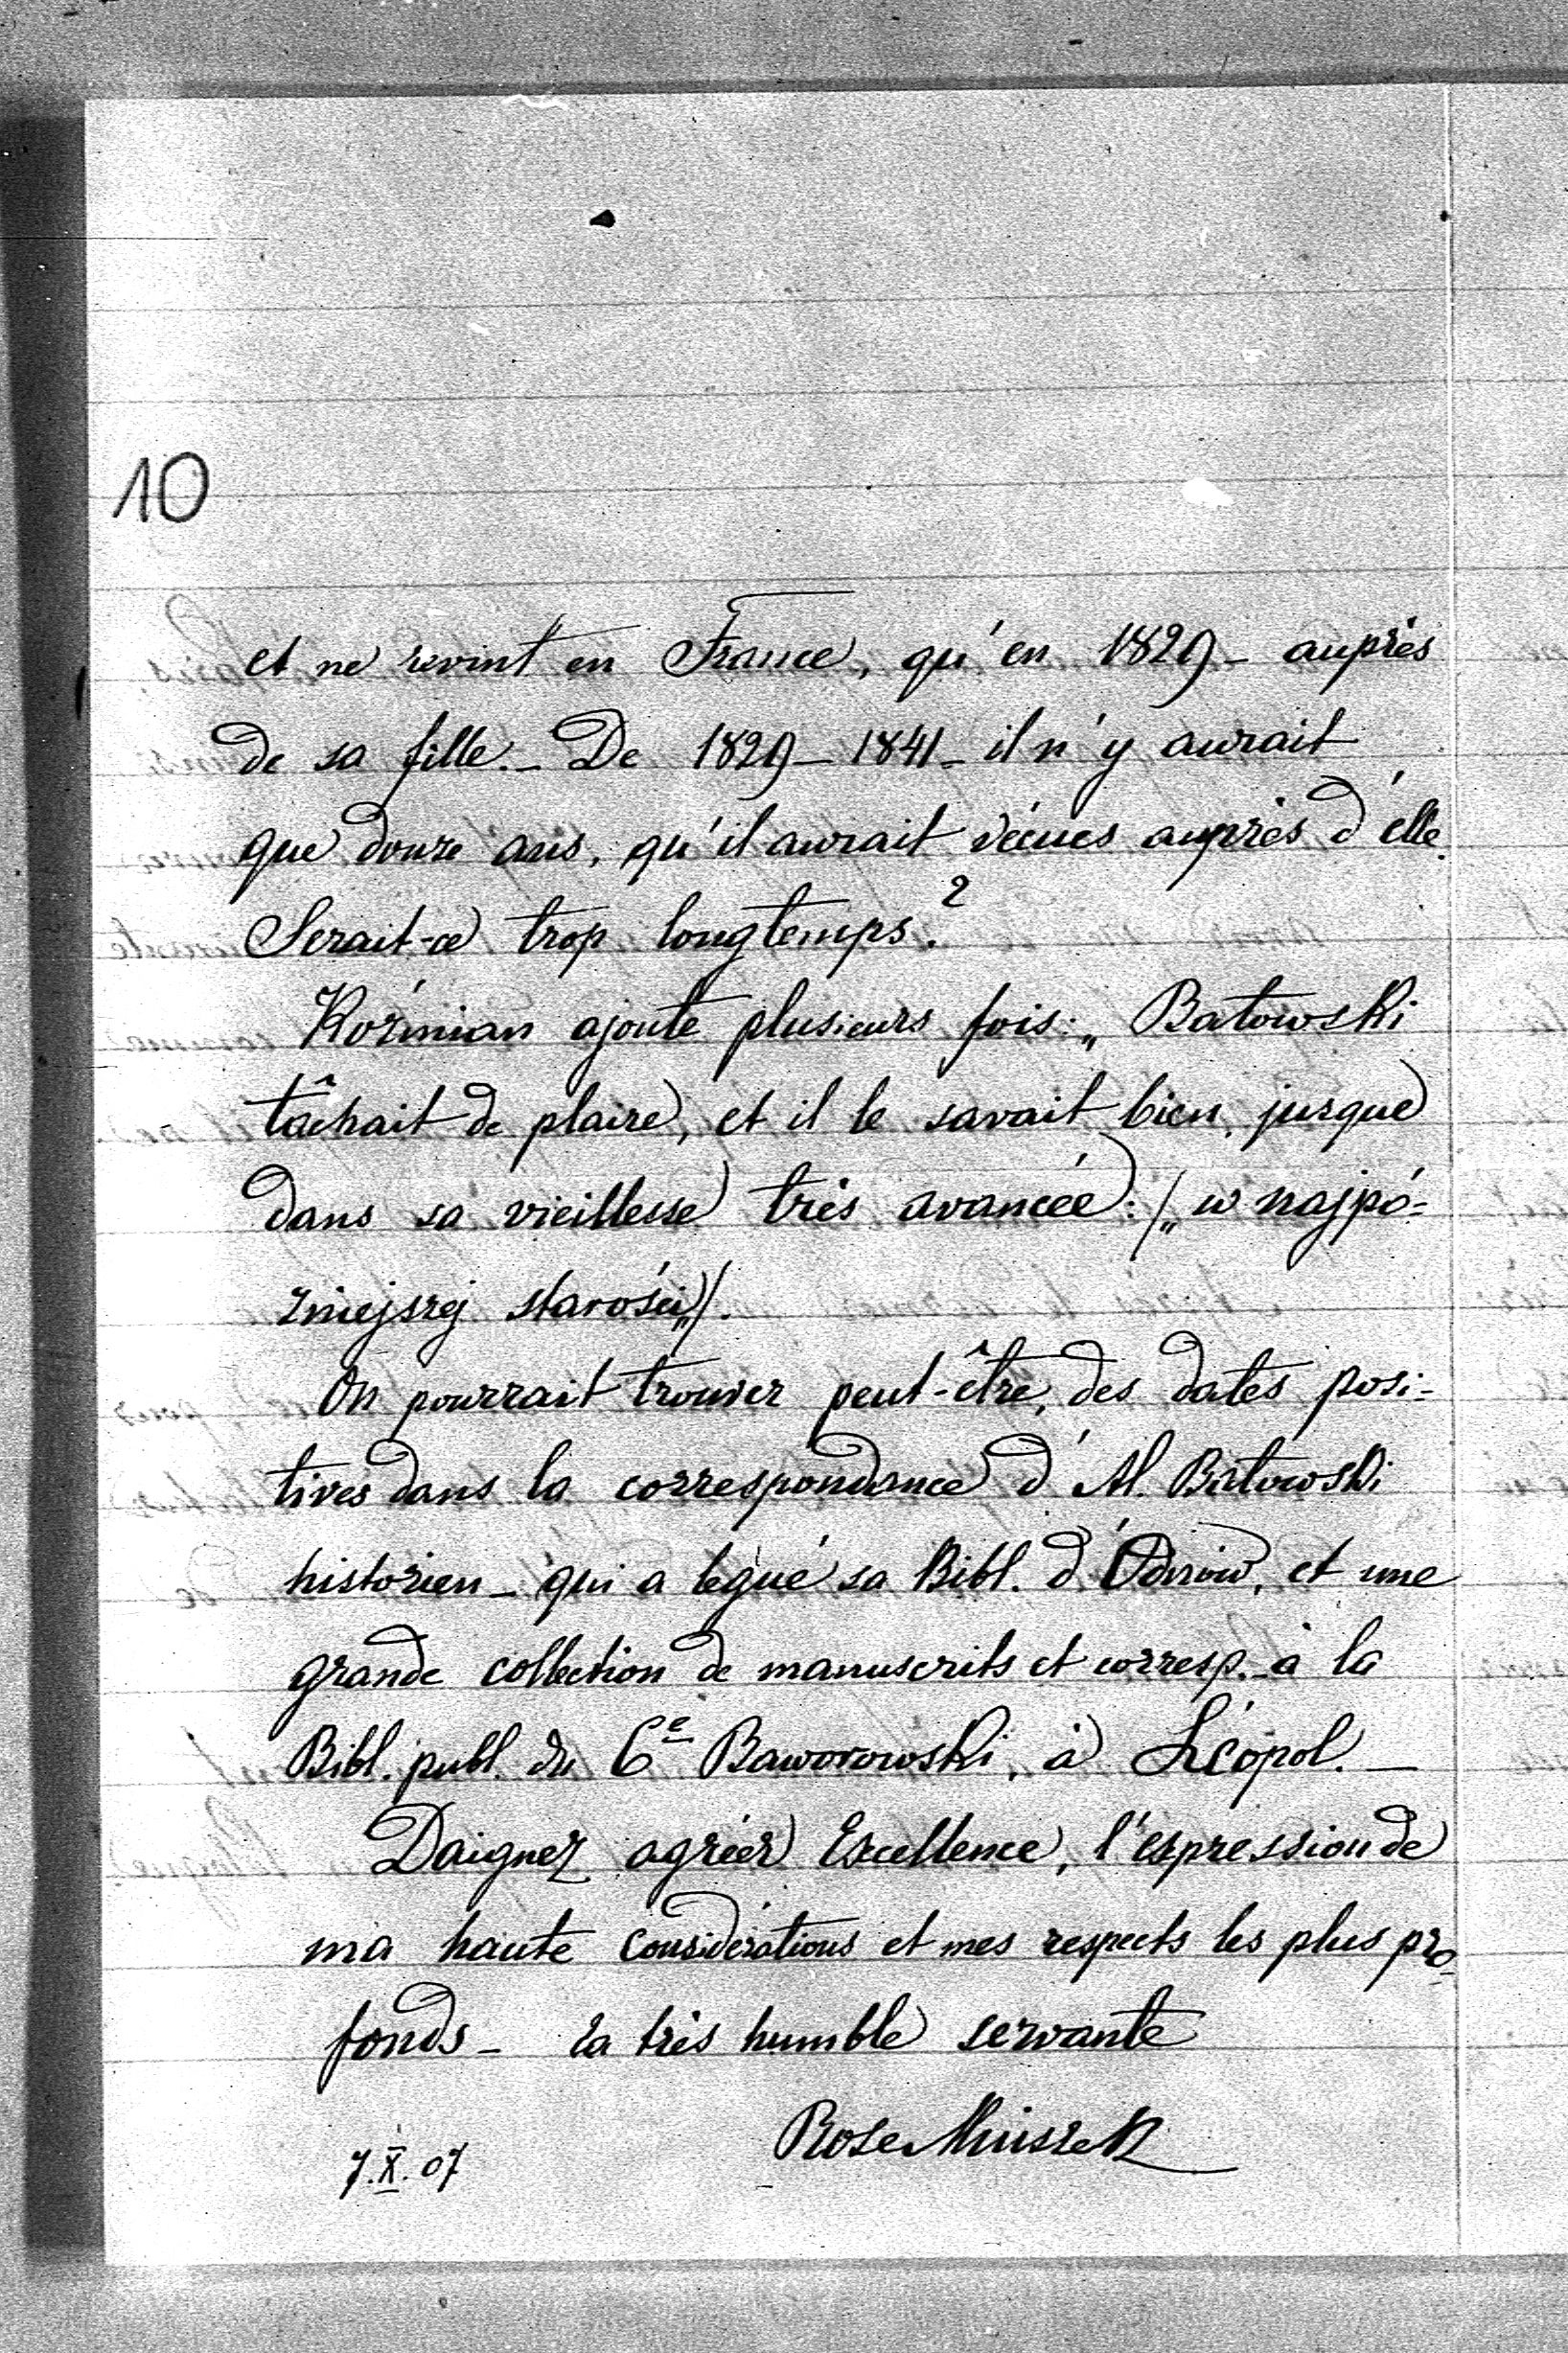 10
et ne revint en France, qu'en 1829 - auprès
de sa fille. - De 1829 - 1841 - il n'y aurait
que douze ans, qu'il aurait vécues auprès d'elle.
Serait-ce trop longtemps?
Koźmian ajoute plusieurs fois: „Batowski
tâchait de plaire, et il le savait bien, jusque
dans sa vieillesse très avancée: /„w najpó=
zniejszej starości„/.
On pourrait trouver peut-être, des dates posi=
tives dans la correspondance d'Al. Batowski
historien - qui a légué sa Bibl. d'Odnów, et une
grande collection de manuscrits et corresp. à la
Bibl. publ. du Cte Baworowski, à Léopol. -
Daignez agréer Excellence, l'expression de
ma haute considérations et mes respects les plus pro-
fonds - la très humble servante
Rose Mniszek
7.X.07